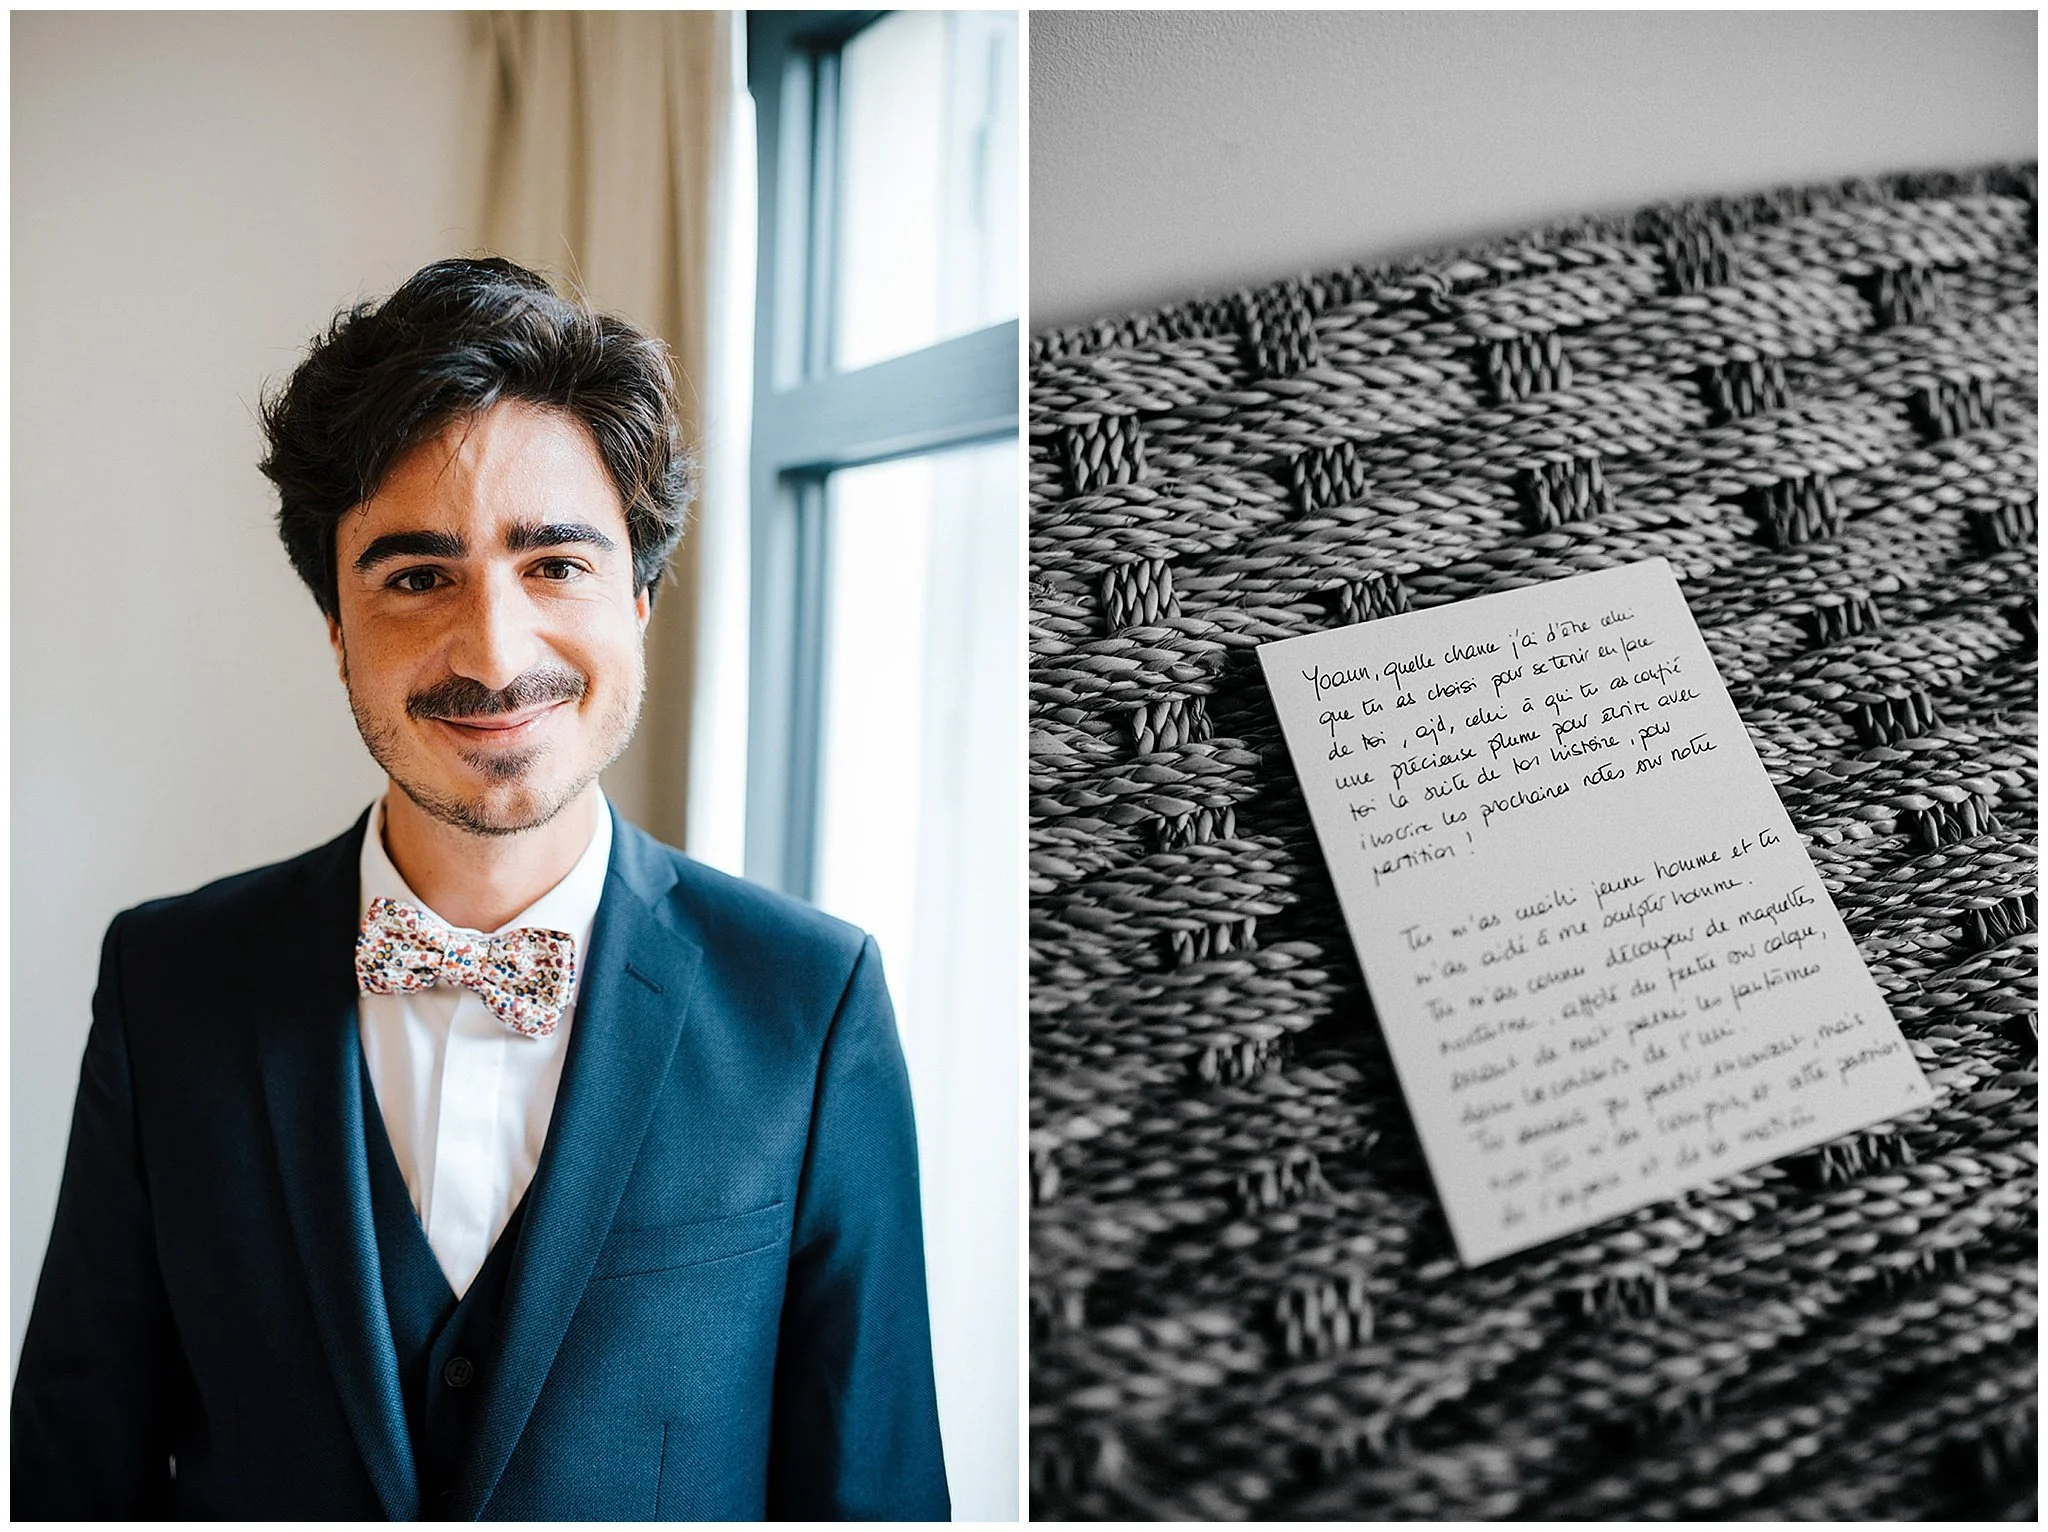 Yoann, quelle chance j'ai d'être celui
que tu as choisi pour se tenir en face
de toi, ajd, celui à qui tu as confié
une précieuse plume pour écrire avec
toi la suite de ton histoire, pour
inscrire les prochaines notes sur notre
partition !
Tu m'as cueilli jeune homme et tu
m'as aidé à me sculpter homme.
Tu m'as connu découpeur de maquettes
nocturne, affolé du feutre sur calque,
de nuit parmi les fantômes
dans les couloirs de l'
Tu
et cette passion